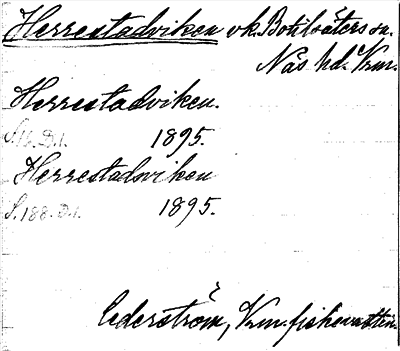 Herrestadviken vk. Botilsäters sn.
Näs hd. Vrm.
Herrestadviken.
S. 16. D. 1. 1895.
Herrestadviken
S. 188. D. 1. 1895.
Cederström, Vrm. fiskevatten